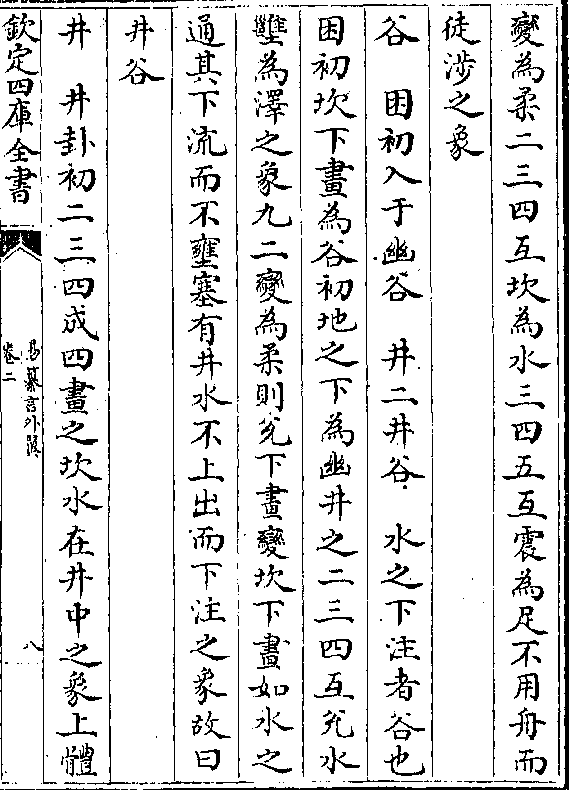 變為柔二三四互坎為水三四五互震為足不用舟而
徒涉之象
谷　困初入于幽谷　井二井谷　水之下注者谷也
困初坎下畫為谷初地之下為幽井之二三四互兊水
壅為澤之象九二變為柔則兊下畫變坎下畫如水之
通其下流而不壅塞有井水不上出而下注之象故曰
井谷
井　井卦初二三四成四畫之坎水在井中之象上體
欽定四庫全書
易纂言外翼
卷二
八